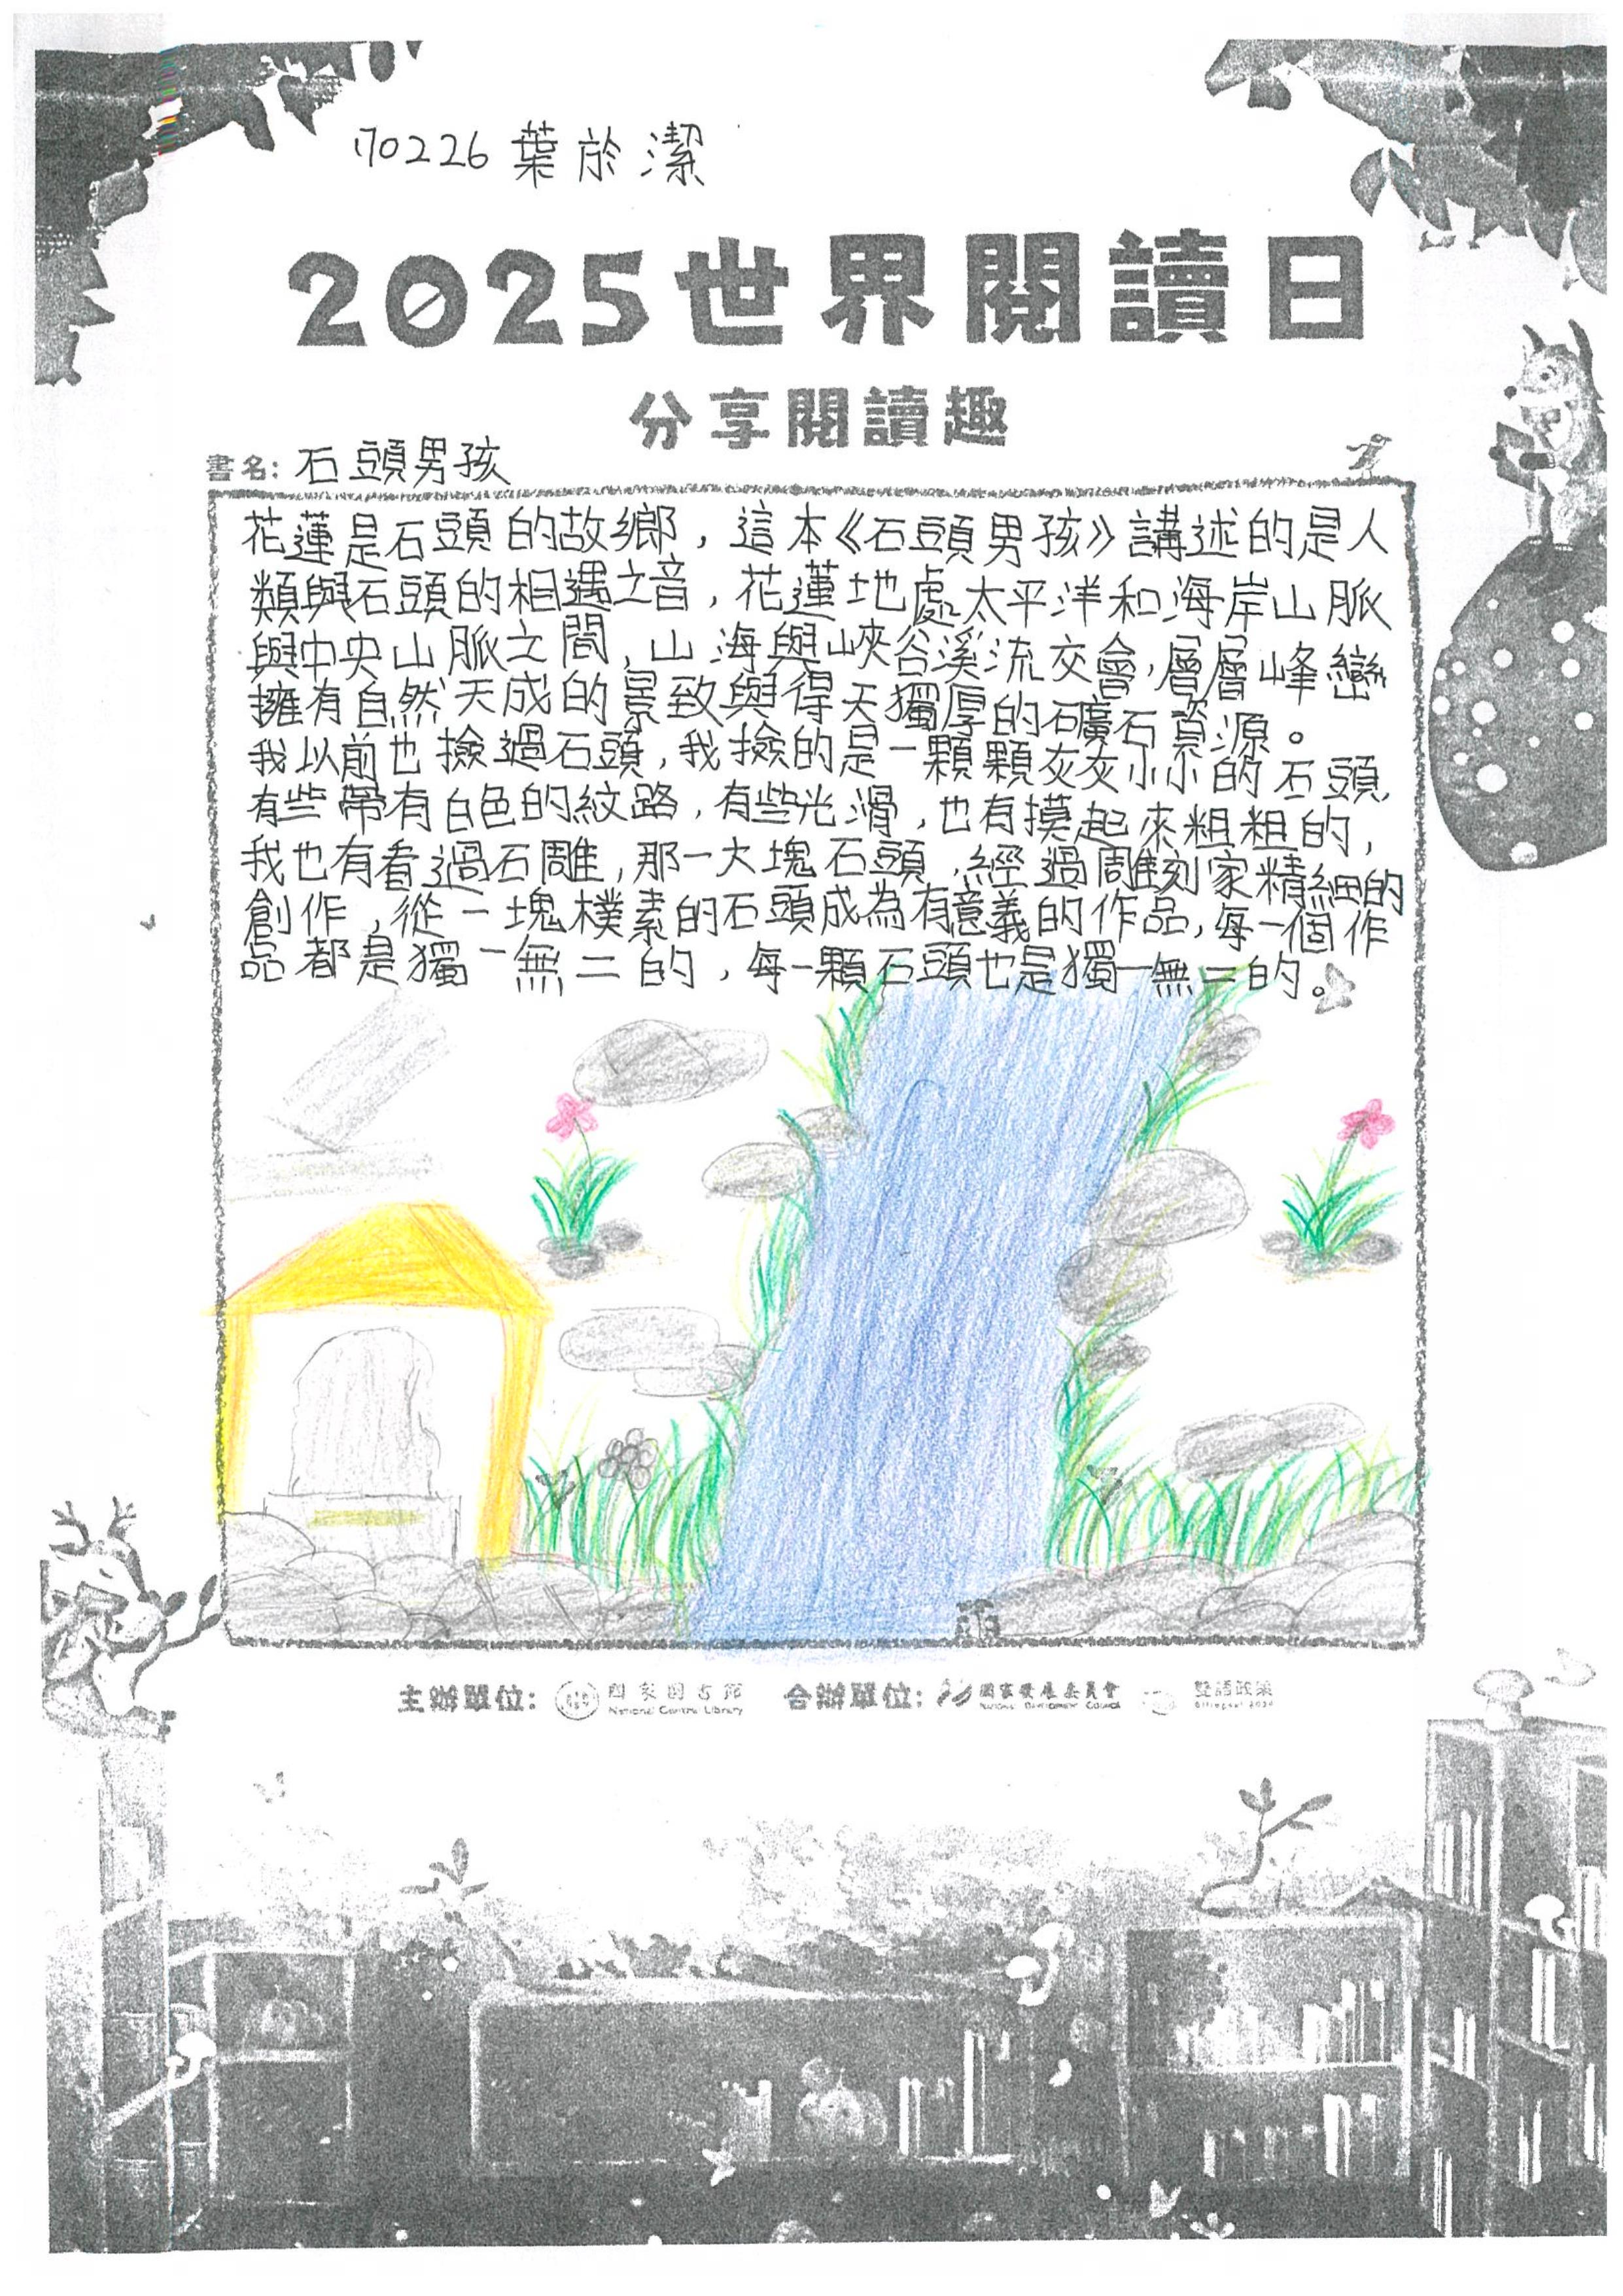 70226 葉於潔
2025世界閱讀日
分享閱讀趣
書名: 石頭男孩
花蓮是石頭的故鄉，這本《石頭男孩》講述的是人
類與石頭的相遇之音，花蓮地處太平洋和海岸山脈
與中央山脈之間，山海與峽谷溪流交會，層層峰巒
擁有自然天成的景致與得天獨厚的礦石資源。
我以前也撿過石頭，我撿的是一顆顆灰灰小小的石頭，
有些帶有白色的紋路，有些光滑，也有摸起來粗粗的，
我也有看過石雕，那一大塊石頭，經過雕刻家精細的
創作，從一塊樸素的石頭成為有意義的作品，每一個作
品都是獨一無二的，每一顆石頭也是獨一無二的。
主辦單位: 國家圖書館 合辦單位: 國家發展委員會 雙語政策
National Central Library National Development Council